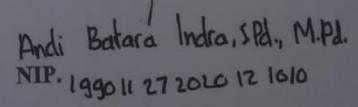 Andi Batara Indra, S.Pd., M.Pd.
NIP. 19901127 2020 12 1010